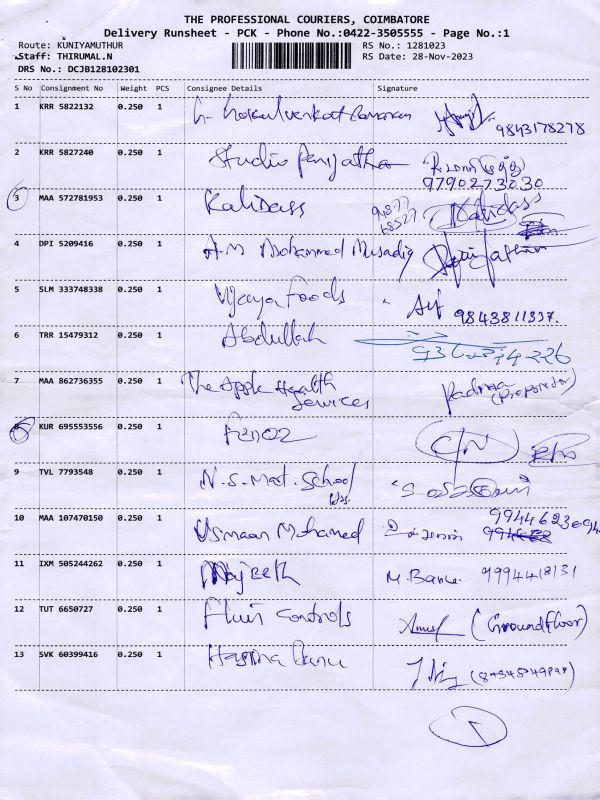 THE PROFESSIONAL COURIERS, COIMBATORE
Delivery Runsheet - PCK - Phone No.:0422-3505555 - Page No.:1
Route: KUNIYAMUTHUR RS No.: 1281023
Staff: THIRUMAL.N RS Date: 28-Nov-2023
DRS No.: DCJB128102301
S No Consignment No Weight PCS Consignee Details Signature
1 KRR 5822132 0.250 1 9843178278
2 KRR 5827240 0.250 1 Studio Parijatha
9790273030
3 MAA 572781953 0.250 1 KaliDass Kalidass
4 DPI 5209416 0.250 1 A.M Mohammed Musadiq
5 SLM 333748338 0.250 1 Vijaya Foods 9843811337.
6 TRR 15479312 0.250 1 Abdullah
7 MAA 862736355 0.250 1 The Apple Health Padma
Services (Propositor)
8 KUR 695553556 0.250 1
9 TVL 7793548 0.250 1 N.S. Mat. School
10 MAA 107470150 0.250 1 Usmaan Mohamed
11 IXM 505244262 0.250 1 Majeeth M. Banu.
12 TUT 6650727 0.250 1 Fluir Controls (Groundfloor)
13 SVK 60399416 0.250 1 Hasina Banu